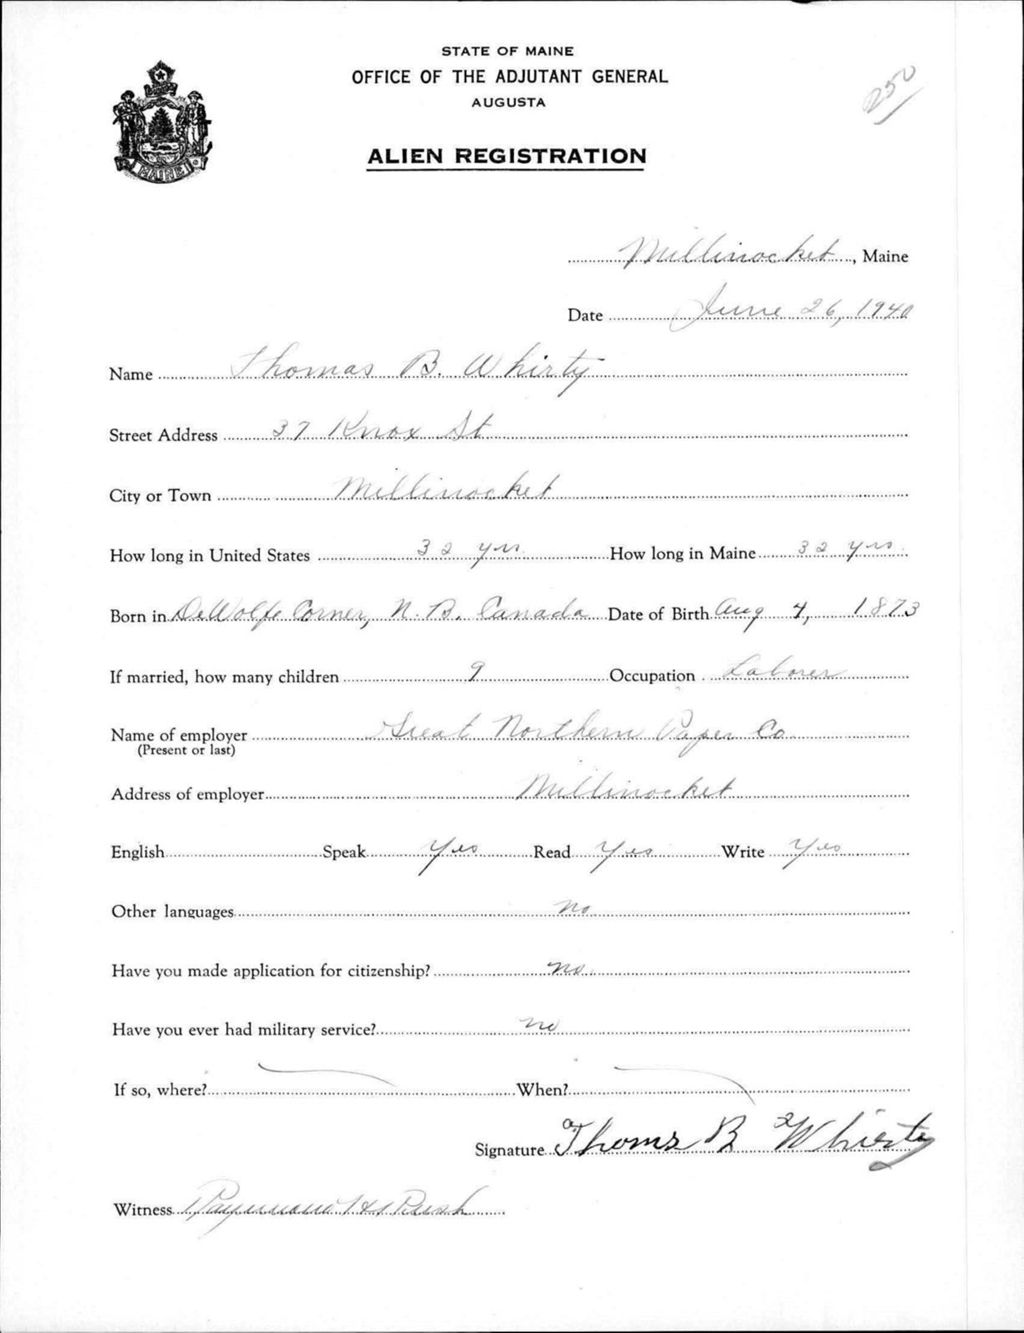 STATE OF MAINE
OFFICE OF THE ADJUTANT GENERAL
AUGUSTA
250
ALIEN REGISTRATION
MAINE
Millinocket, Maine
Date June 26, 1940
Name Thomas B. Whirty
Street Address 37 Knox St
City or Town Millinocket
How long in United States 32 yrs How long in Maine 32 yrs
Born in DeWolfe Corner, N.B. Canada Date of Birth Aug 4, 1873
If married, how many children 9 Occupation Laborer
Name of employer Great Northern Paper Co
(Present or last)
Address of employer Millinocket
English Speak Yes Read Yes Write Yes
Other languages no
Have you made application for citizenship? no
Have you ever had military service? no
If so, where? When?
Signature Thoms B Whirty
Witness Raymond H